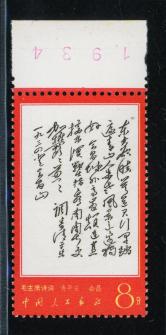 1934
东方欲晓莫道君行早踏
遍青山人未老风景这边独
好会昌城外高峰颠连直
接东溟战士指看南粤更
郁郁葱葱 调寄清平乐
一九三四年
毛主席诗词 清平乐 会昌
中国人民邮政 8分